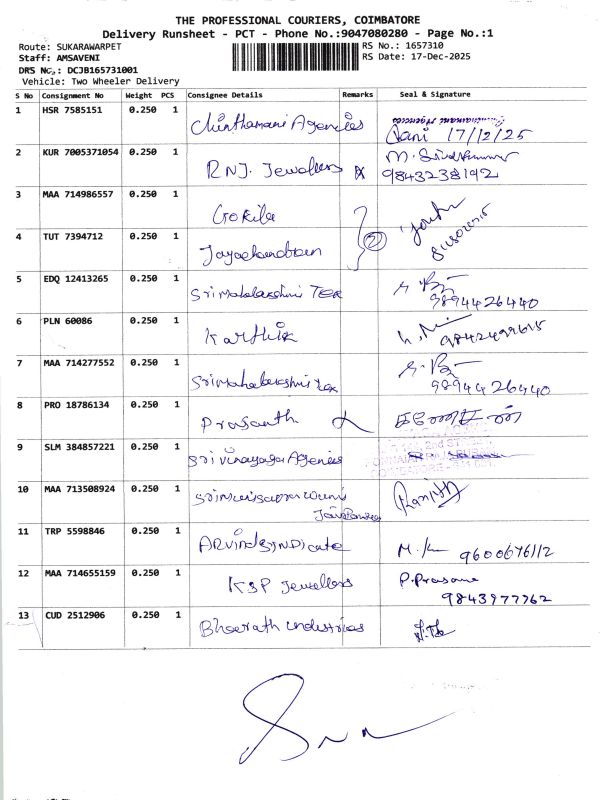 THE PROFESSIONAL COURIERS, COIMBATORE
Delivery Runsheet - PCT - Phone No.:9047080280 - Page No.:1
Route: SUKARAWARPET
RS No.: 1657310
Staff: AMSAVENI
RS Date: 17-Dec-2025
DRS No.: DCJB165731001
Vehicle: Two Wheeler Delivery
S No Consignment No Weight PCS Consignee Details Remarks Seal & Signature
1 HSR 7585151 0.250 1 Chinthamani Agencies
Rani 17/12/25
2 KUR 7005371054 0.250 1 RNJ. Jewellers
9843238192
3 MAA 714986557 0.250 1 Gokila
4 TUT 7394712 0.250 1 Jayachandran 2
5 EDQ 12413265 0.250 1 Sri Mahalakshmi Tex
9894426440
6 PLN 60086 0.250 1 Karthik
7 MAA 714277552 0.250 1 Sri Mahalakshmi Tex
9894426440
8 PRO 18786134 0.250 1 Prasanth
9 SLM 384857221 0.250 1 Sri Vinayaga Agencies
2nd STREET,
10 MAA 713508924 0.250 1
11 TRP 5598846 0.250 1 Arvind Syndicate
9600676112
12 MAA 714655159 0.250 1 KSP Jewellers
9843977762
13 CUD 2512906 0.250 1 Bharath industries